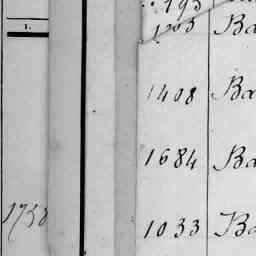 193
1.
1203 Ba
1408 Ba
1684 Ba
1738
1033 Ba